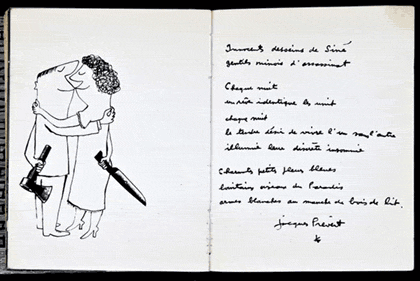 Innocents dessins de Siné
gentils minois d'assassinat
Chaque nuit
un rêve identique les unit
chaque nuit
le tendre désir de vivre l'un sans l'autre
illumine leur discrète insomnie
Charmants petits fleurs bleues
lointains oiseaux du Paradis
armes blanches au manche de bois de lit.
Jacques Prévert